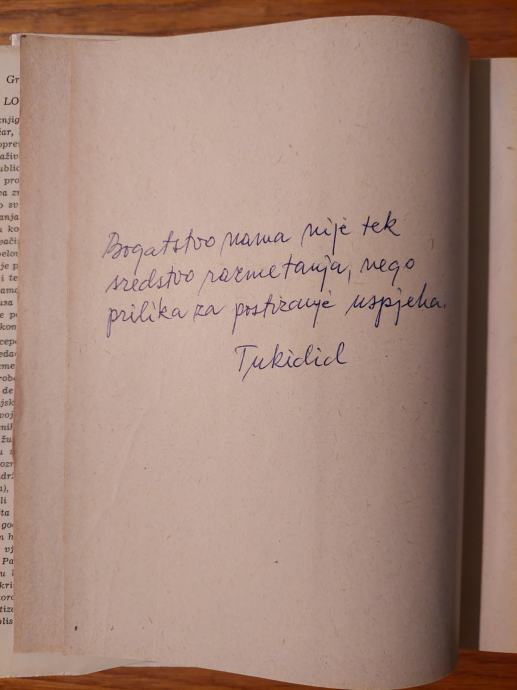 Bogatstvo nama nije tek
sredstvo razmetanja, nego
prilika za postizanje uspjeha.
Tukidid
Gr
LO